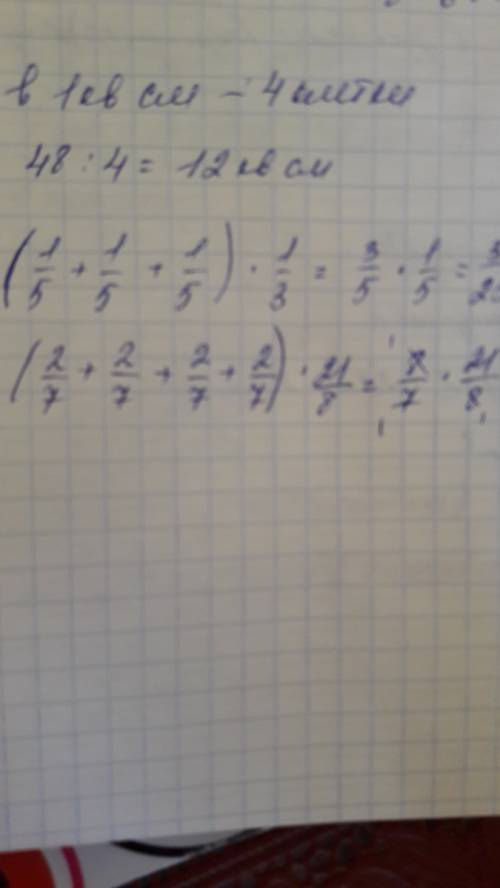 в 1 кв см – 4 клетки
48 : 4 = 12 кв см
(1/5 + 1/5 + 1/5) · 1/3 = 3/5 · 1/5 = 3/25
(2/7 + 2/7 + 2/7 + 2/7) · 21/8 = 8/7 · 21/8